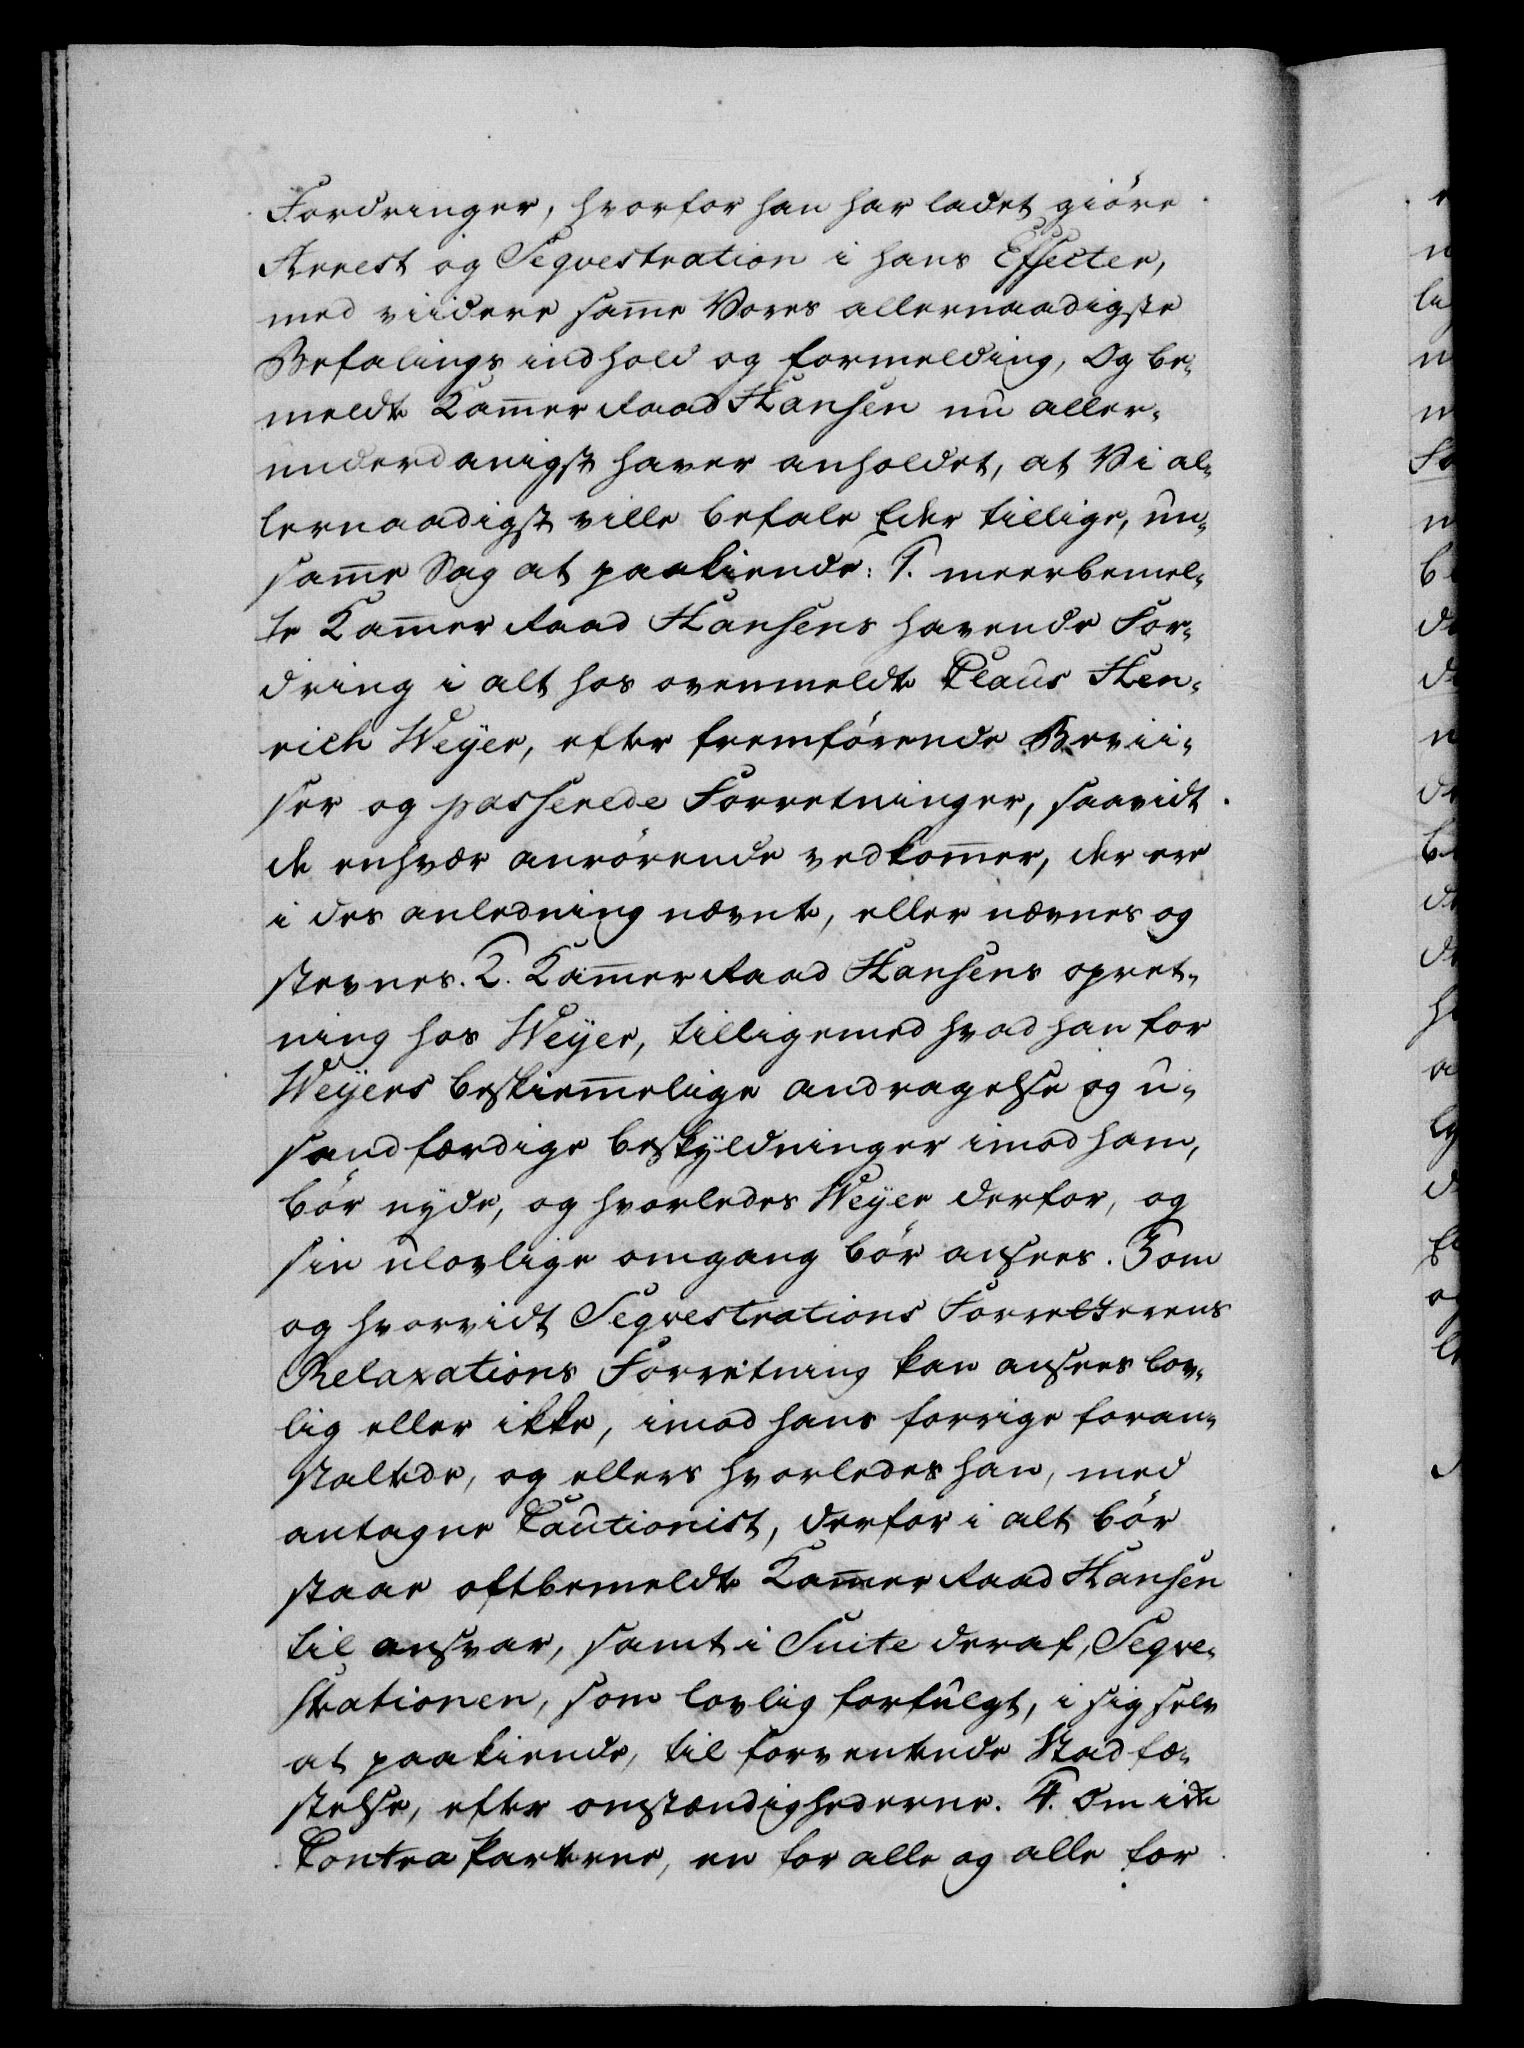 Fordringer, hvorfor han har ladet giöre
Arrest og Seqvestration i hans Effecter,
med viidere samme Vores allernaadigste
Befalings indhold og formelding, Og be-
meldte Kammer Raad Hansen nu aller-
underdanigst haver anholdet, at Vi al-
lernaadigst ville befale Eder tillige, un-
samme Sag at paakiende: 1. meerbemel-
te Kammer Raad Hansens havende For-
dring i alt hos ovenmeldte Claus Hen-
rich Weyer, efter fremförende Bevii-
ser og passerede Forretninger, saavidt
de enhvær anrörende vedkommer, der ere
i des anledning nævnte, eller nævnes og
stevnes. 2. Kammer Raad Hansens opret-
ning hos Weyer, tilligemed hvad han for
Weyers beskiemmelige andragelse og u-
sandfærdige beskyldninger imod ham,
bör nyde, og hvorledes Weyer derfor, og
sin ulovlige omgang bör ansees. 3 om
og hvorvidt Seqvestrations Forretterens
Relaxations Forretning kan ansees lov-
lig eller ikke, imod hans forrige foran-
staltede, og ellers hvorledes han, med
antagne Cautionist, derfor i alt bör
staae oftbemeldte Kammer Raad Hansen
til ansvar, samt i Suite deraf, Seqve-
strationen, som lovlig forfulgt, i sig selv
at paakiende, til forventende Stadfæ-
stelse, efter omstændighederne. 4. Om ide
Contra parterne, en for alle og alle for